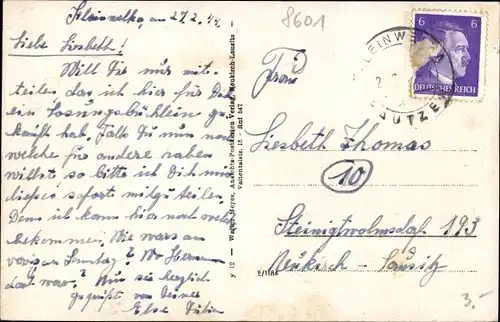 Kleinwelka, am 27.2.44.
Liebe Liesbeth!
Will Dir nur mit-
teilen das ich hier für Dich
ein Losungsbüchlein ge-
kauft hab. Falls Du nun noch
welche für andere haben
willst, so bitte ich Dich mir
dieses sofort mitzuteilen.
Denn ich kann hier noch welche
bekommen. Wie wars am
vorigen Sonntag? Wo Hermann
dort war? Nun sei herzlich
gegrüßt von Deiner
Else
y 12 — Walter Meyer, Ansichts-Postkarten Verlag, Neukirch-Lausitz —
Valtentalstr. 15 - Ruf 547
8601
KLEINWELKA
BAUTZEN
6 6
DEUTSCHES REICH
Frau
Liesbeth Thomas
10
Steinigtwolmsdorf 193
Neukirch - Lausitz
E/1184
3.-